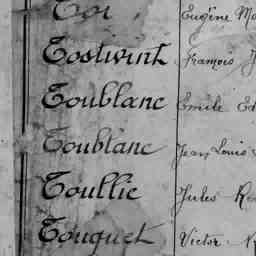 Eugène
Tostivint François
Toublanc Emile
Toublanc Jean Louis
Toullic Jules
Touquet Victor